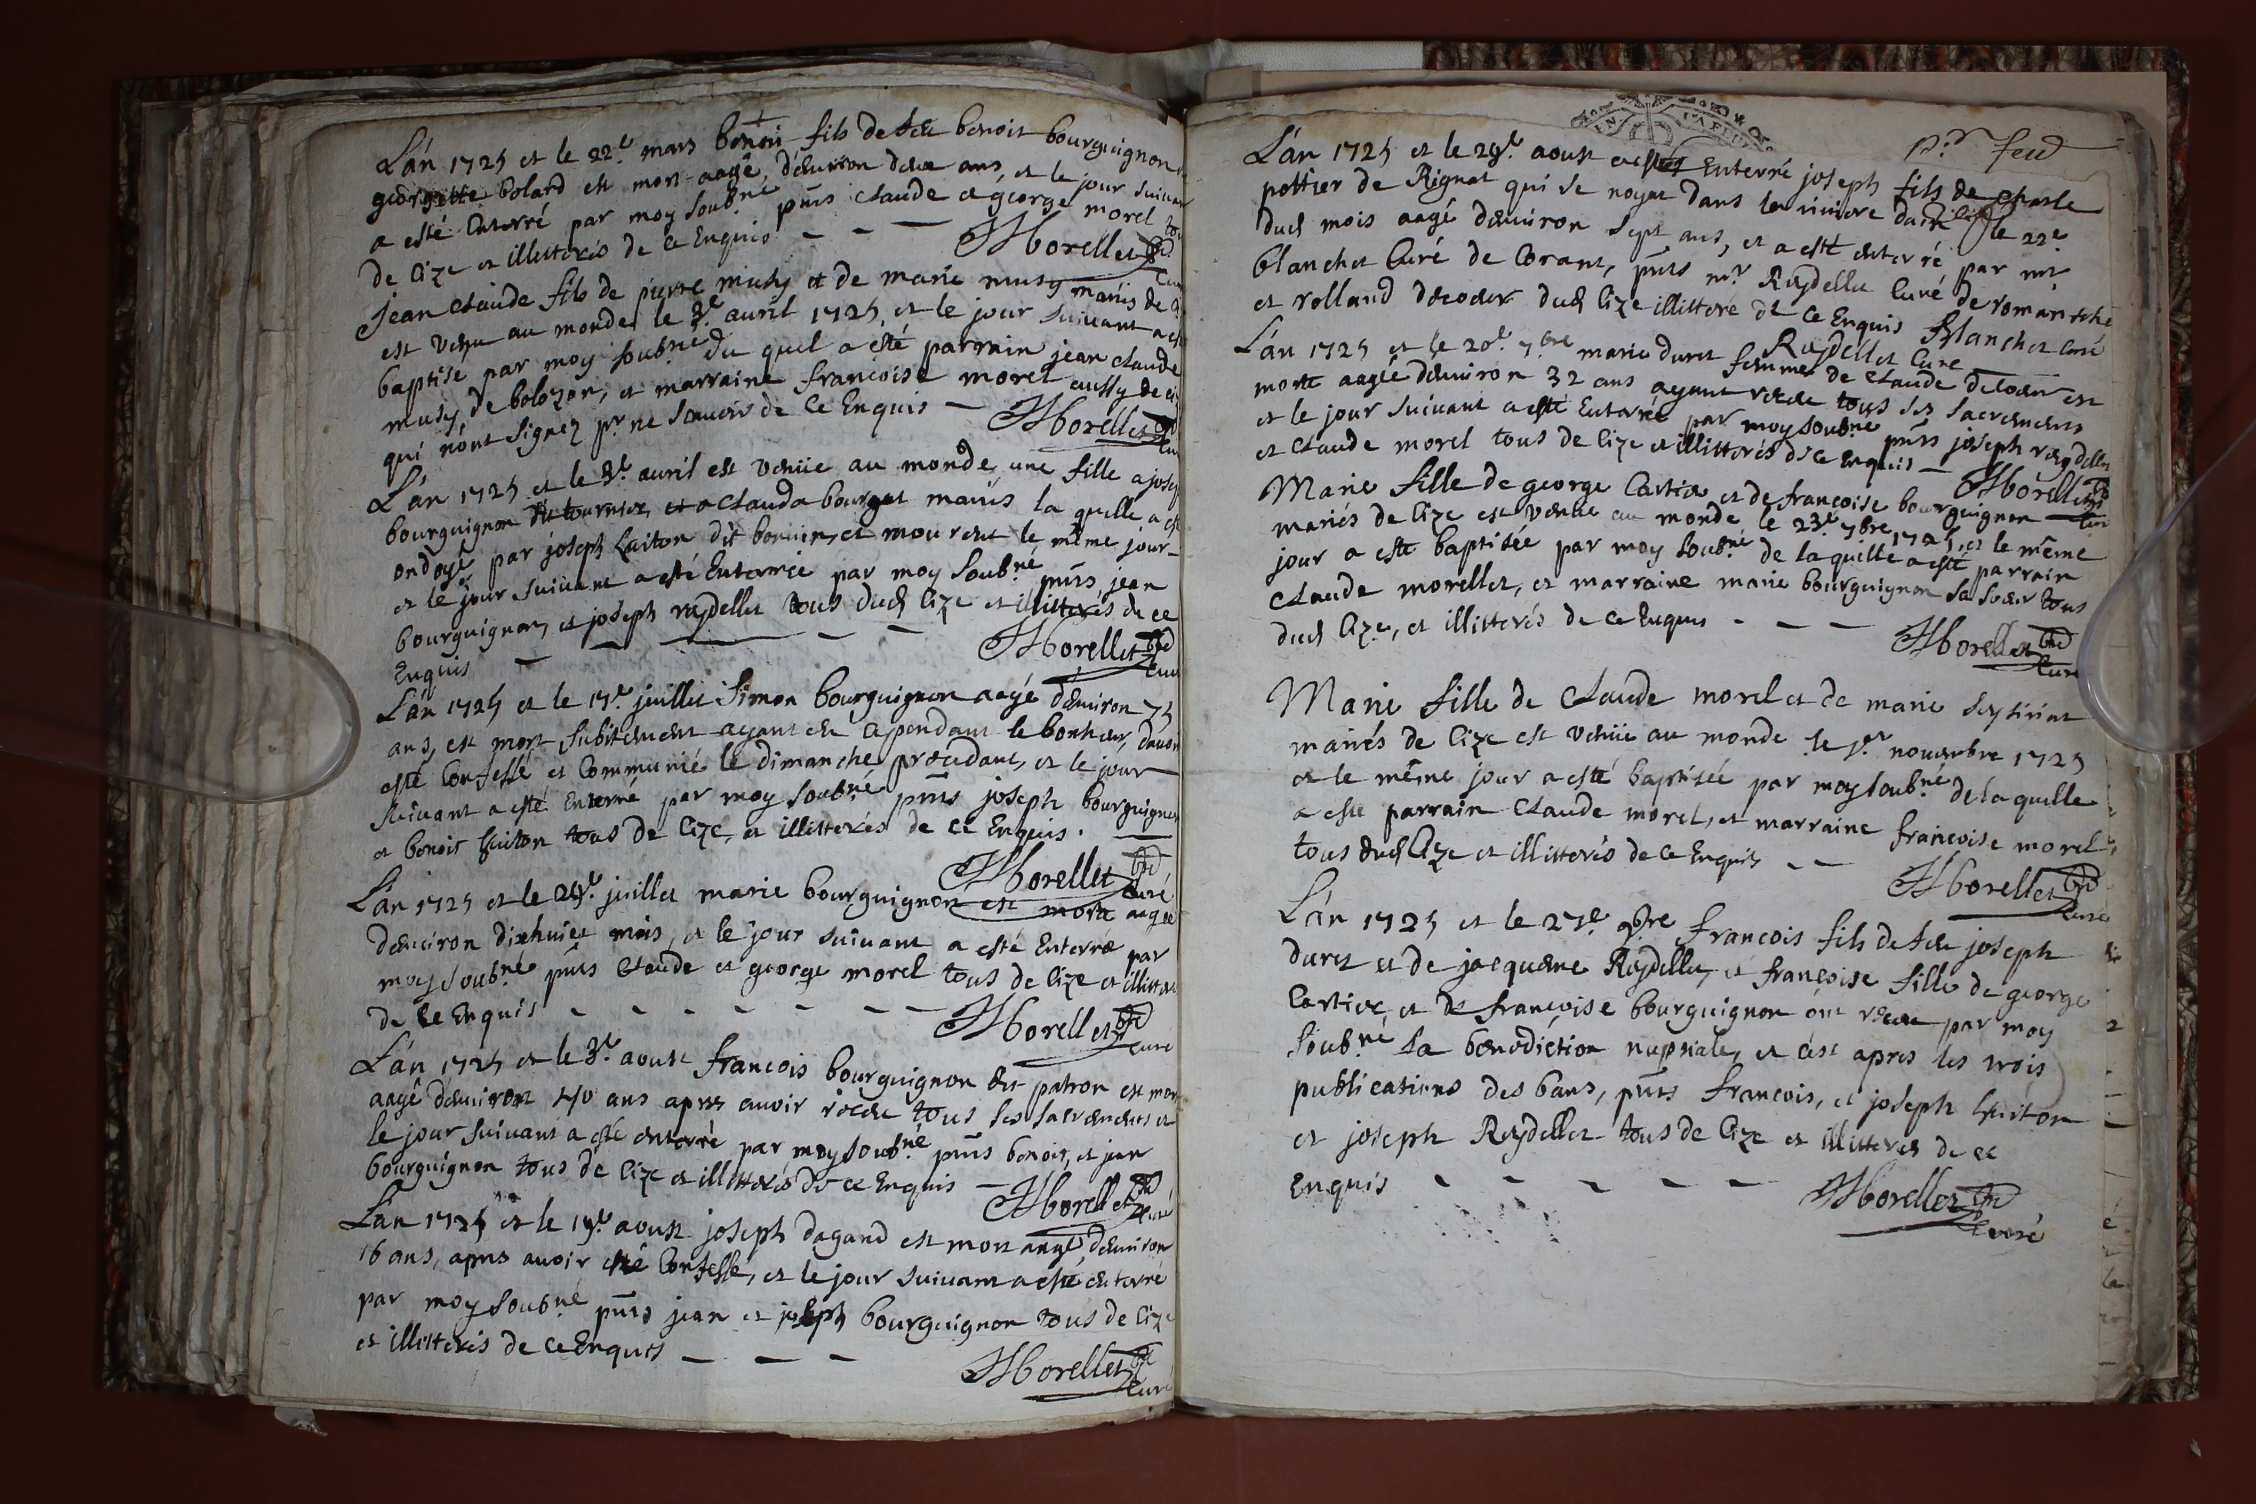 L'an 1725 et le 22e. mars benoit fils de feu benoit bourguignon
georgette bolard est mort aagé d'environ deux ans, et le jour suivan
a esté enterré par moy soubné pnts claude et george morel to
de Cize et illitterés de ce Enquis
Morellet
Jean claude fils de pierre musy et de marie musy mariés de
est venu au monde le 3e. avril 1725, et le jour suivant a est
baptisé par moy soubné du quel a esté parrain jean claude
musy de bolozon, et marraine francoise morel aussy de
qui n'ont signez pr ne scavoir de ce Enquis
Morellet
L'an 1725 et le 8e. avril est venüe au monde une fille a josep
bourguignon dit tournier, et a Clauda bourget mariés la quelle a est
ondoyé par joseph Luiton dit bouvier, et mourut le même jour
et le jour suivant a esté Enterrée par moy soubné pnts jean
bourguignon, et joseph reydellet tous dud Cize et illitterés de ce
Enquis
Morellet Curé
L'an 1725 et le 17e. juillet Simon bourguignon aagé d'environ 75
ans, est mort subitement ayant eu cependant le bonheur, davoir
esté Confessé et Communié le dimanche précédant, et le jour
suivant a esté Enterré par moy soubné pnts joseph bourguignon
et benoit Luiton tous de Cize et illitterés de ce Enquis.
Morellet Curé
L'an 1725 et le 29e. juillet marie bourguignon est morte aagée
denviron dixhuict mois, et le jour suivant a esté Enterrée par
moy soubné pnts Claude et george morel tous de Cize et illitter
de ce Enquis
Morellet Curé
L'an 1725 et le 3e. aoust francois bourguignon dit patron est mor
aagé d'environt 40 ans apres avoir réceu tous ses sacrements et
le jour suivant a esté enterré par moy soubné pnts benoit, et jean
bourguignon tous de Cize et illitterés de ce Enquis
Morellet Curé
L'an 1725 et le 19e. aoust joseph dagand est mort aagé d'environ
16 ans, apres avoir esté Confessé, et le jour suivant a esté enterré
par moy soubné pnts jean et joseph bourguignon tous de Cize
et illitterés de ce Enquis
Morellet Curé
L'an 1725 et le 29e. aoust a esté Enterré joseph fils de Charle
pottier de Rignat qui se noya dans la riviere dain le 22e
dud mois aagé d'environ sept ans, et a esté enterré par mr
blanchet Curé de Corant, pnts mr Reydellet Curé de romanèche
et rolland decoeur dud Cize illitteré de ce Enquis Blanchet Curé
Reydellet Curé
L'an 1725 et le 20e. 7bre marie duret femme de Claude decoeur est
morte aagée d'environ 32 ans ayant receu tous ses sacrements
et le jour suivant a esté Enterrée par moy soubné pnts joseph reydellet
et Claude morel tous de Cize et illitterés de ce Enquis
Morellet Curé
Marie fille de george Cartier et de francoise bourguignon
mariés de Cize est venüe au monde le 23e. 7bre 1725, et le même
jour a esté baptisée par moy soubné de la quelle a esté parrain
Claude morellet, et marraine marie bourguignon sa soeur tous
dud Cize, et illitterés de ce Enquis
Morellet Curé
Marie fille de Claude morel et de marie
mariés de Cize est venüe au monde le 1er novembre 1725
et le même jour a esté baptisée par moy soubné de la quelle
a esté parrain Claude morel, et marraine francoise morel
tous dud Cize et illitterés de ce Enquis
Morellet Curé
L'an 1725 et le 27e. 9bre francois fils de feu joseph
duret et de jacquême Reydellet, et françoise fille de george
Cartier, et de francoise bourguignon ont receu par moy
soubné la bénédiction nuptiale, et c'est apres les trois
publications des bans, pnts francois, et joseph Luiton
et joseph Reydellet tous de Cize et illitterés de ce
Enquis
Morellet
Curé